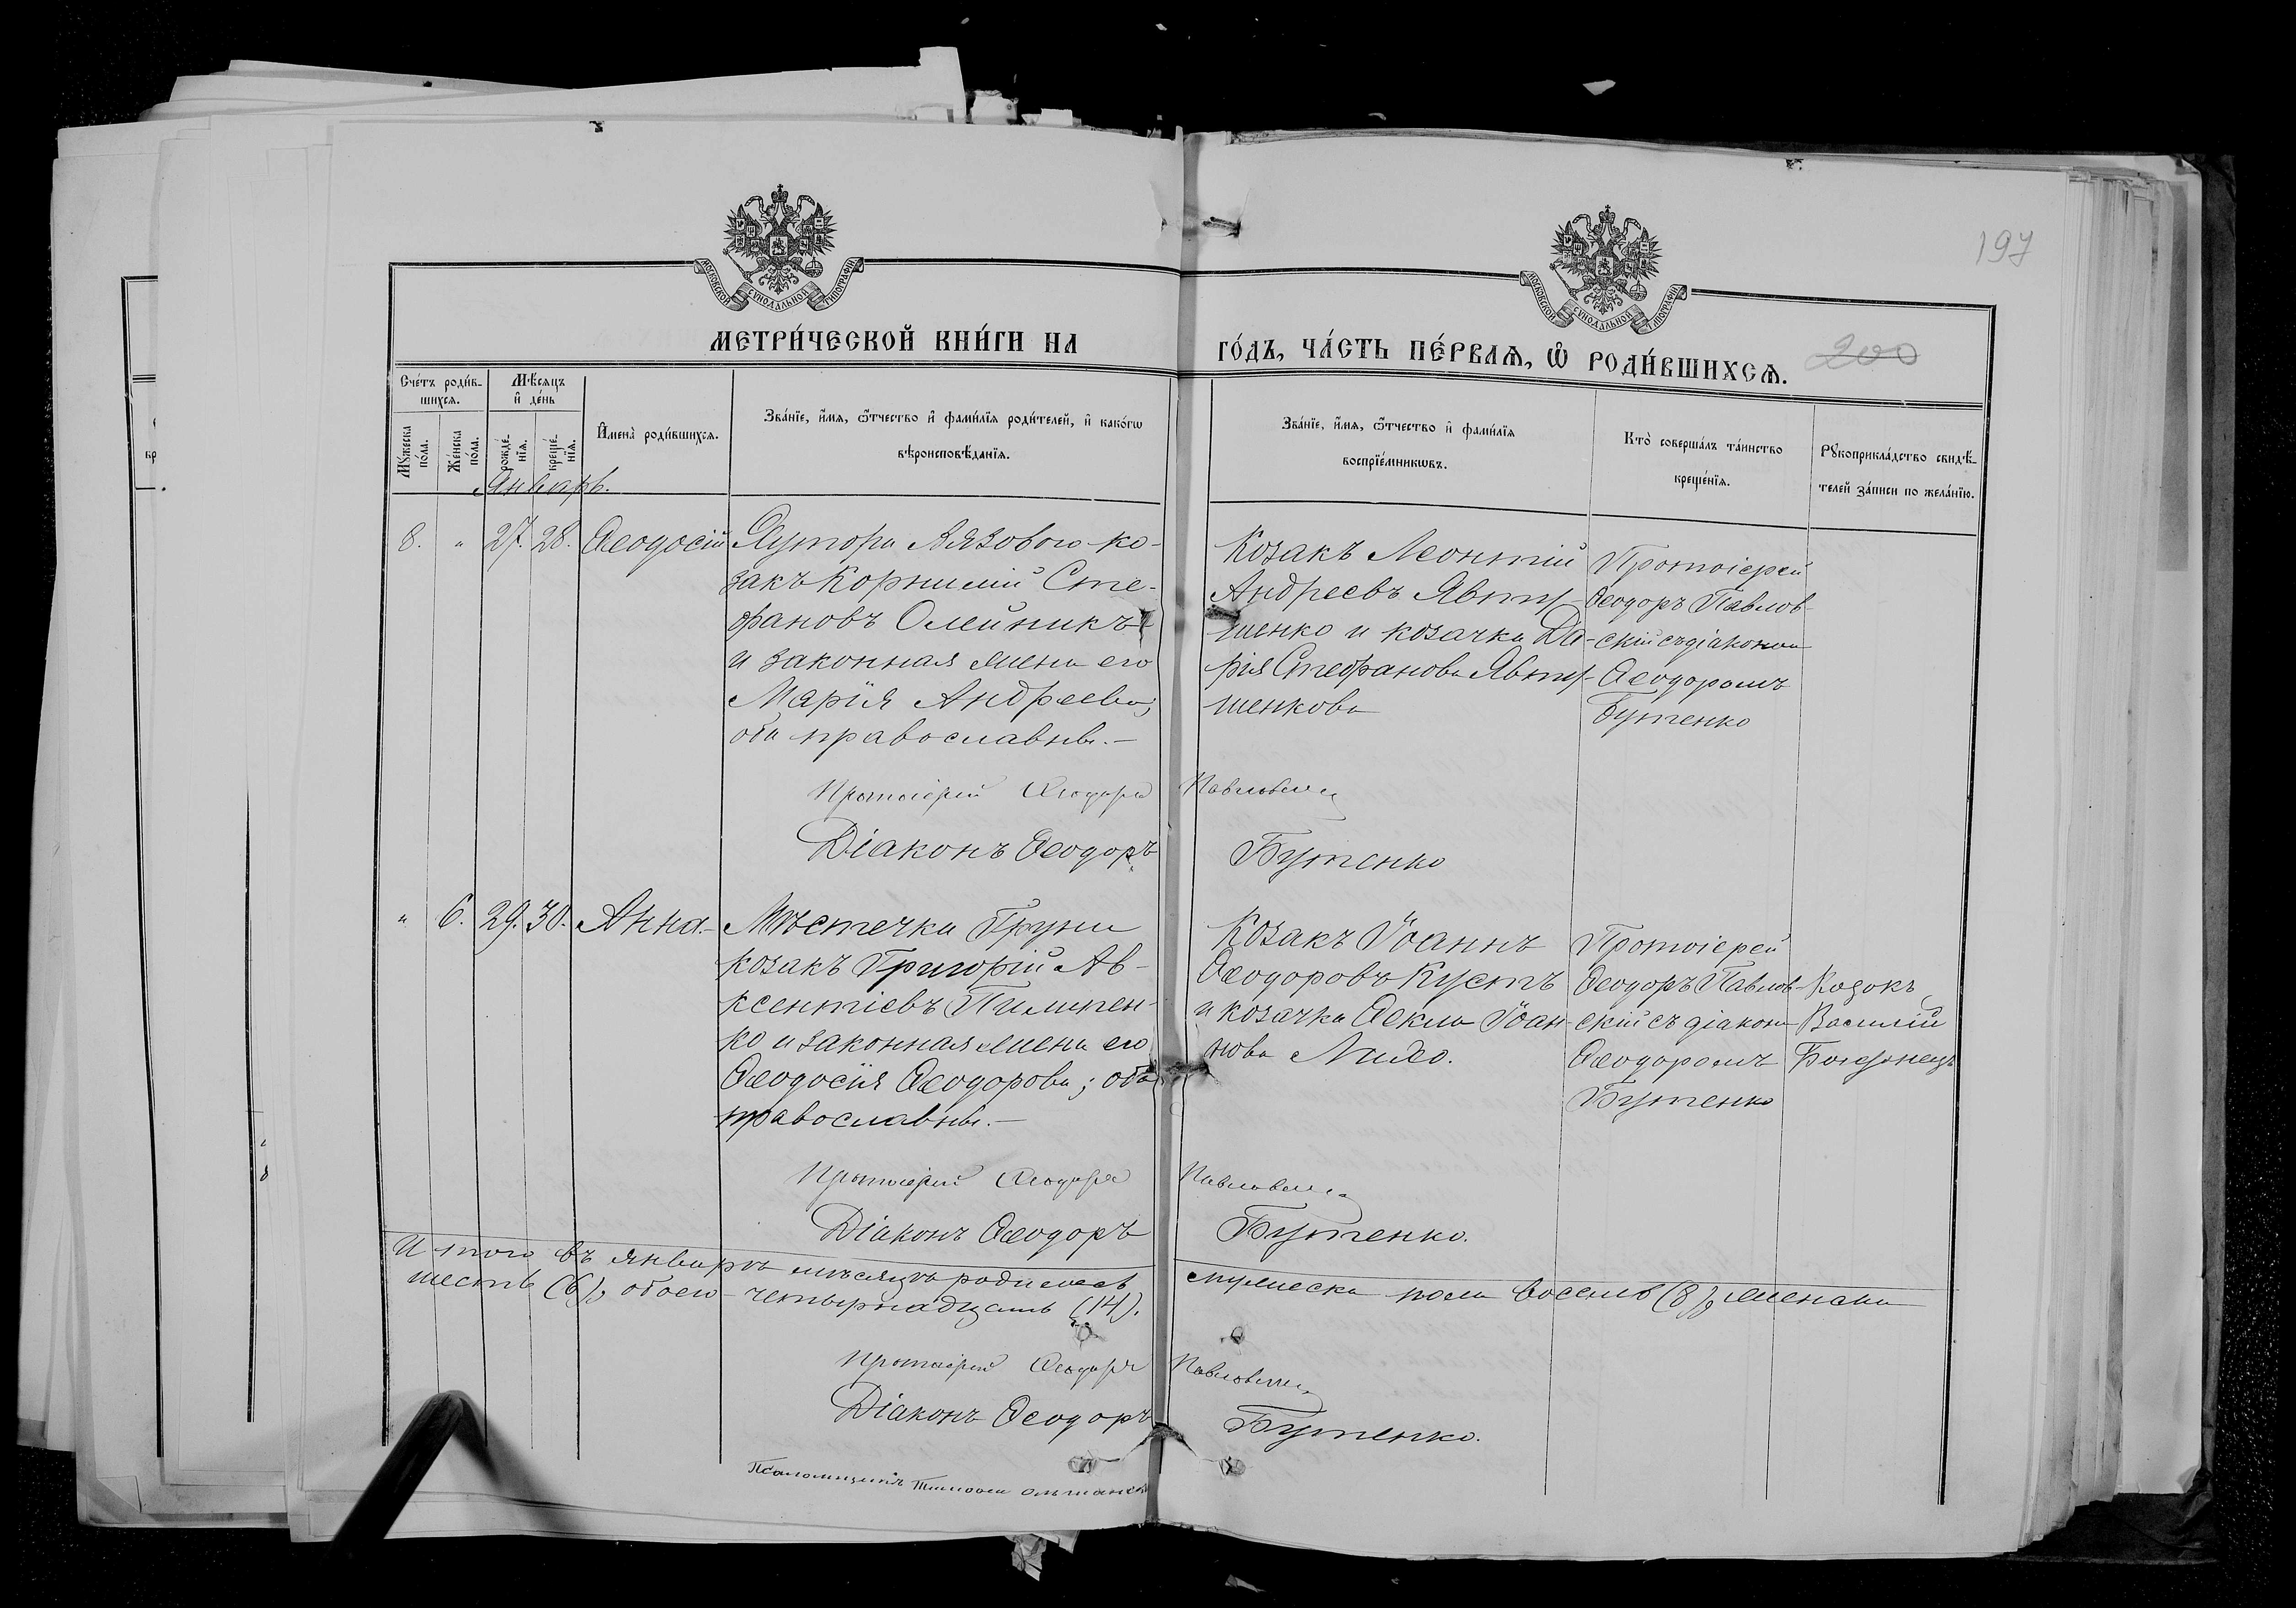 197
МОСКОВСКОЙ СУНОДАЛЬНОЙ ТИПОГРАФІИ
МОСКОВСКОЙ СУНОДАЛЬНОЙ ТИПОГРАФІИ
МЕТРИ́ЧЕСКОЙ КНИ́ГИ НА
ГО́ДЪ, ЧА́СТЬ ПЕ́РВАѦ, Ѡ РОДИ́ВШИХСѦ.
200
Сче́тъ роди́в-
шихсѧ.
Мѣ́сѧцъ
и҆ де́нь
Мꙋ́жеска
по́ла.
Же́нска
по́ла.
рожде́-
нїѧ.
креще́-
нїѧ.
И҆мена̀ роди́вшихсѧ.
Зва́нїе, и҆́мѧ, ѻ҆́тчество и҆ фами́лїѧ роди́телей, и҆ како́гѡ
вѣроисповѣ́данїѧ.
Зва́нїе, и҆́мѧ, ѻ҆́тчество и҆ фами́лїѧ
воспрїе́мникѡвъ.
Кто̀ соверша́лъ та́инство
креще́нїѧ.
Рꙋкоприкла́дство свидѣ́-
телей за́писи по жела́нїю.
Январь.
8. " 27. 28. Ѳеодосій
Хутора Вязового ко-
закъ Корнилій Сте-
фановъ Олейникъ
и законная жена его
Марія Андреева;
оба православны.—
Козакъ Леонтій
Андреевъ Явту-
шенко и козачка Да-
рія Стефанова Явту-
шенкова
Протоіерей
Ѳеодоръ Павлов-
скій съ діакономъ
Ѳеодоромъ
Бутенко
Протоіерей Ѳеодоръ Павловскій
Діаконъ Ѳеодоръ Бутенко
" 6. 29. 30. Анна.
Мѣстечка Груни
козакъ Григорій Ав-
ксентіевъ Пилипен-
ко и законная жена его
Ѳеодосія Ѳеодорова; оба
православны.—
Козакъ Іоаннъ
Ѳеодоровъ Кустъ
и козачка Ѳекла Іоан-
нова
Протоіерей
Ѳеодоръ Павлов-
скій съ діакономъ
Ѳеодоромъ
Бутенко
Козакъ
Василій
Протоіерей Ѳеодоръ Павловскій
Діаконъ Ѳеодоръ Бутенко.
Итого въ январѣ мѣсяцѣ родилось мужеска пола восемь (8), женска
шесть (6), обоего — четырнадцать (14).
Протоіерей Ѳеодоръ Павловскій
Діаконъ Ѳеодоръ Бутенко.
Псаломщикъ Тимоѳей